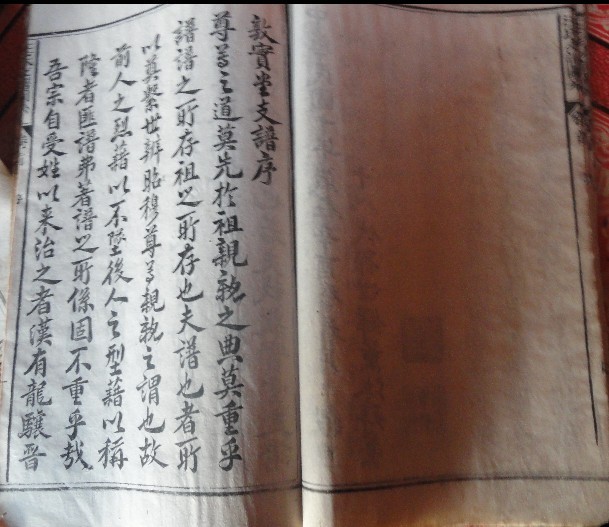 敦實堂支譜序
尊尊之道莫先於祖親親之典莫重乎
譜譜之所存祖之所存也夫譜也者所
以奠繫世辨昭穆尊尊親親之謂也故
前人之烈藉以不墜後人之型藉以稱
隆者匪譜弗著譜之所係固不重乎哉
吾宗自受姓以来治之者漢有龍驤晉